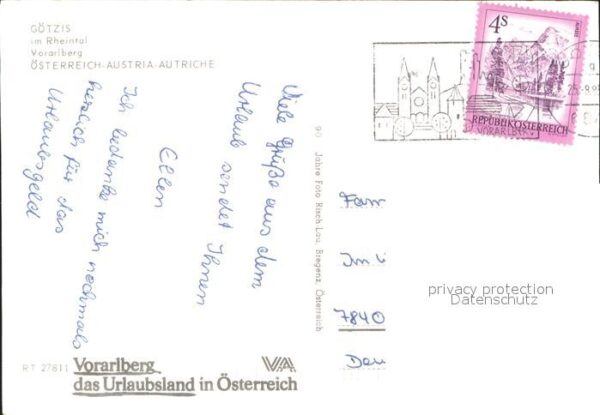 GÖTZIS
im Rheintal
Vorarlberg
ÖSTERREICH-AUSTRIA-AUTRICHE
Viele Grüße aus dem
Urlaub sendet Ihnen
Ellen
Ich bedanke mich nochmals
herzlich für das
Urlaubsgeld
RT 27811
Vorarlberg
das Urlaubsland in Österreich
VA
90 Jahre Foto Risch Lau, Bregenz, Österreich
4S
REPUBLIK ÖSTERREICH
VORARLBERG
Fam
Im
7840
privacy protection
Datenschutz